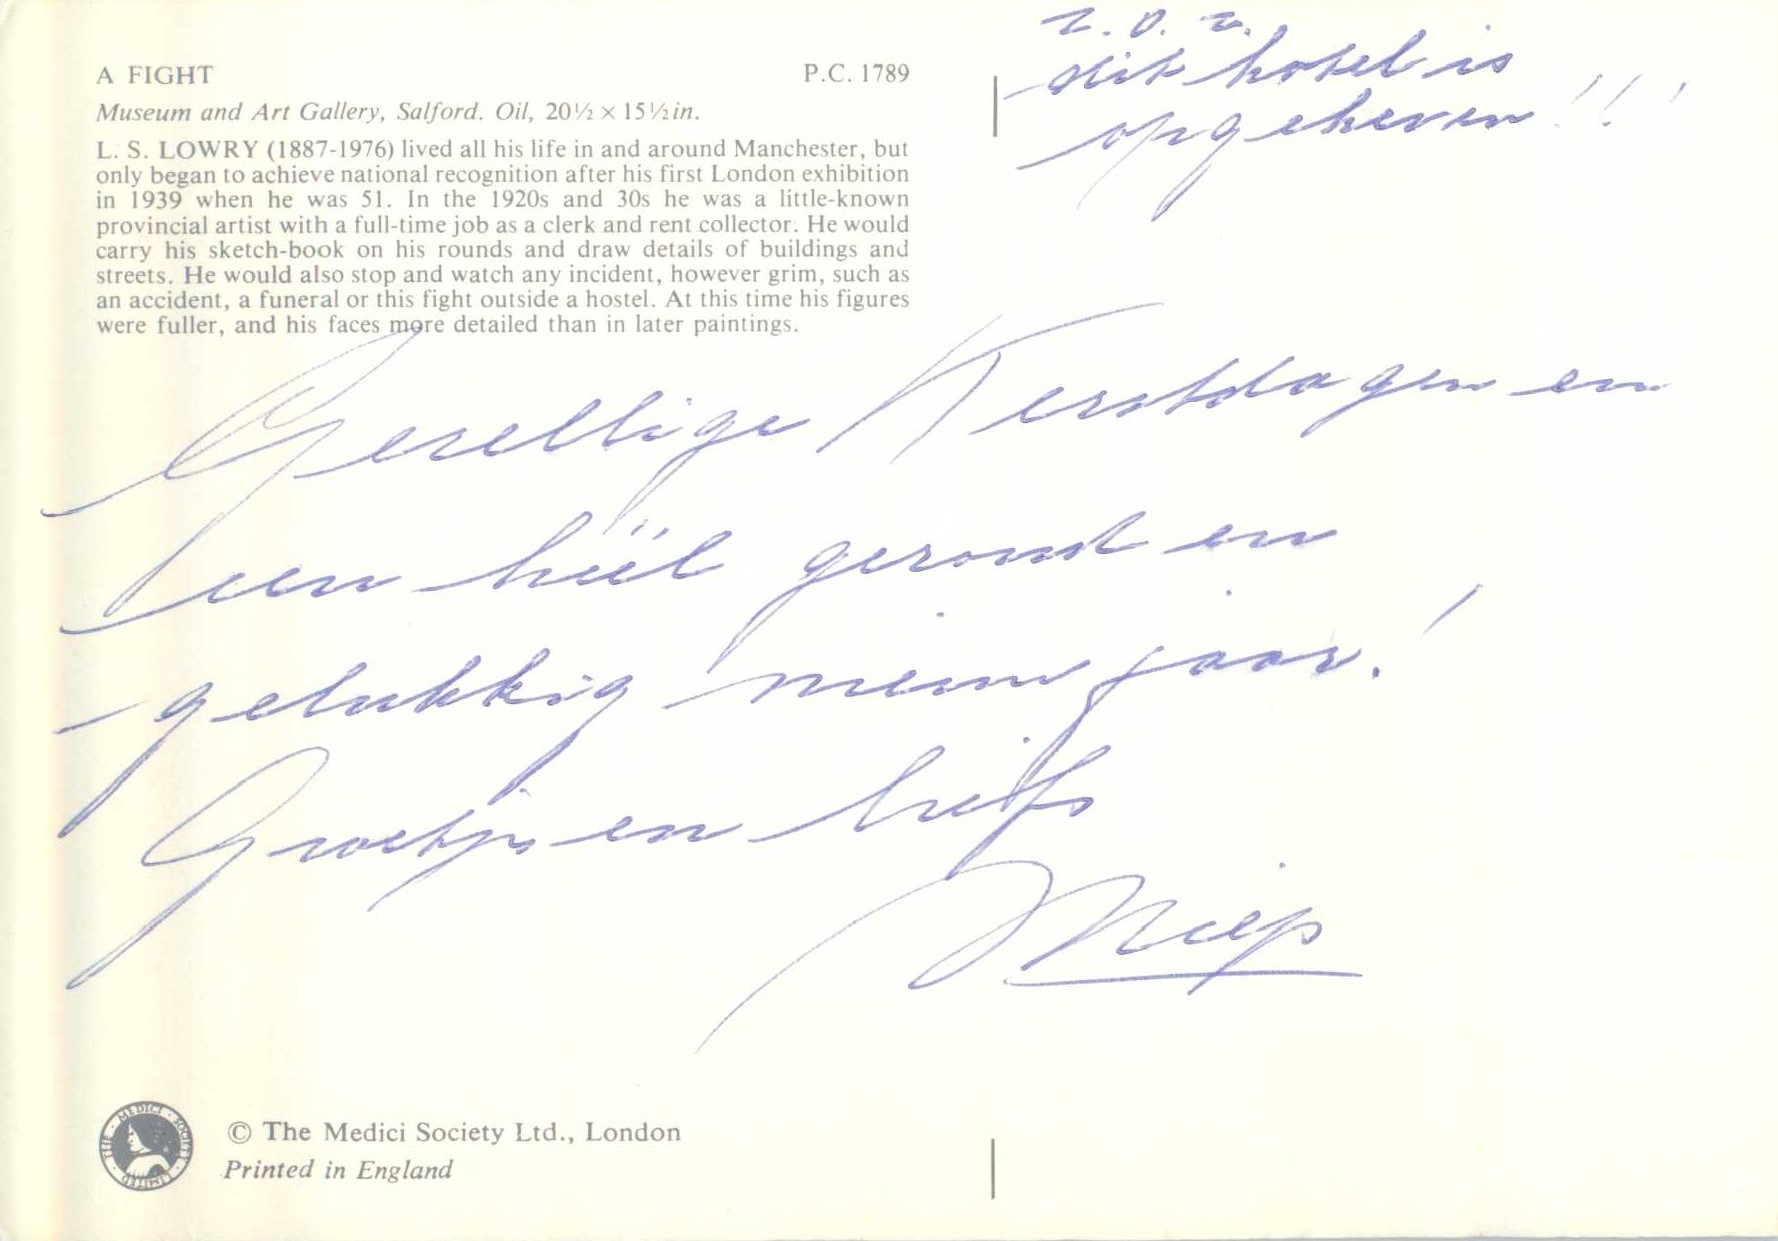 A FIGHT P.C. 1789
Museum and Art Gallery, Salford. Oil, 20½ × 15½in.
L. S. LOWRY (1887-1976) lived all his life in and around Manchester, but
only began to achieve national recognition after his first London exhibition
in 1939 when he was 51. In the 1920s and 30s he was a little-known
provincial artist with a full-time job as a clerk and rent collector. He would
carry his sketch-book on his rounds and draw details of buildings and
streets. He would also stop and watch any incident, however grim, such as
an accident, a funeral or this fight outside a hostel. At this time his figures
were fuller, and his faces more detailed than in later paintings.
z.o.z.
dit hotel is
opgeheven!!!
Gezellige Kerstdagen en
een héél gezond en
gelukkig nieuwjaar!
Groetjes en liefs
Miep
THE MEDICI SOCIETY LIMITED
© The Medici Society Ltd., London
Printed in England